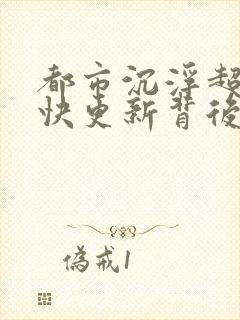 都市沉浮超
快更新背後
偽戒1